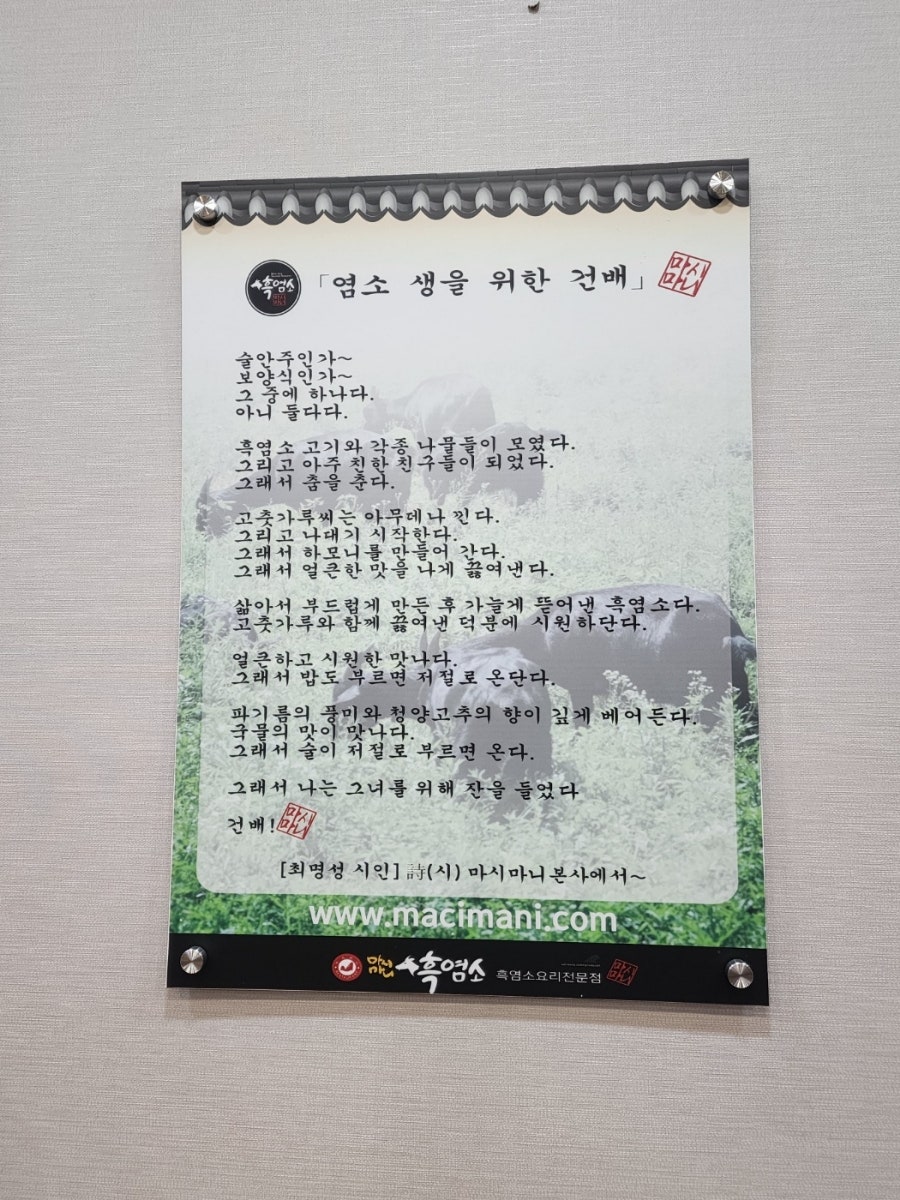 흑염소
「염소 생을 위한 건배」
마시
마니
술안주인가~
보양식인가~
그 중에 하나다.
아니 둘다다.
흑염소 고기와 각종 나물들이 모였다.
그리고 아주 친한 친구들이 되었다.
그래서 춤을 춘다.
고춧가루씨는 아무데나 낀다.
그리고 나대기 시작한다.
그래서 하모니를 만들어 간다.
그래서 얼큰한 맛을 나게 끓여낸다.
삶아서 부드럽게 만든 후 가늘게 뜯어낸 흑염소다.
고춧가루와 함께 끓여낸 덕분에 시원하단다.
얼큰하고 시원한 맛나다.
그래서 밥도 부르면 저절로 온단다.
파기름의 풍미와 청양고추의 향이 깊게 베어든다.
국물의 맛이 맛나다.
그래서 술이 저절로 부르면 온다.
그래서 나는 그녀를 위해 잔을 들었다
건배!
마시
마니
[최명성 시인] 詩(시) 마시마니본사에서~
www.macimani.com
마시
마니
흑염소
흑염소요리전문점
마시
마니